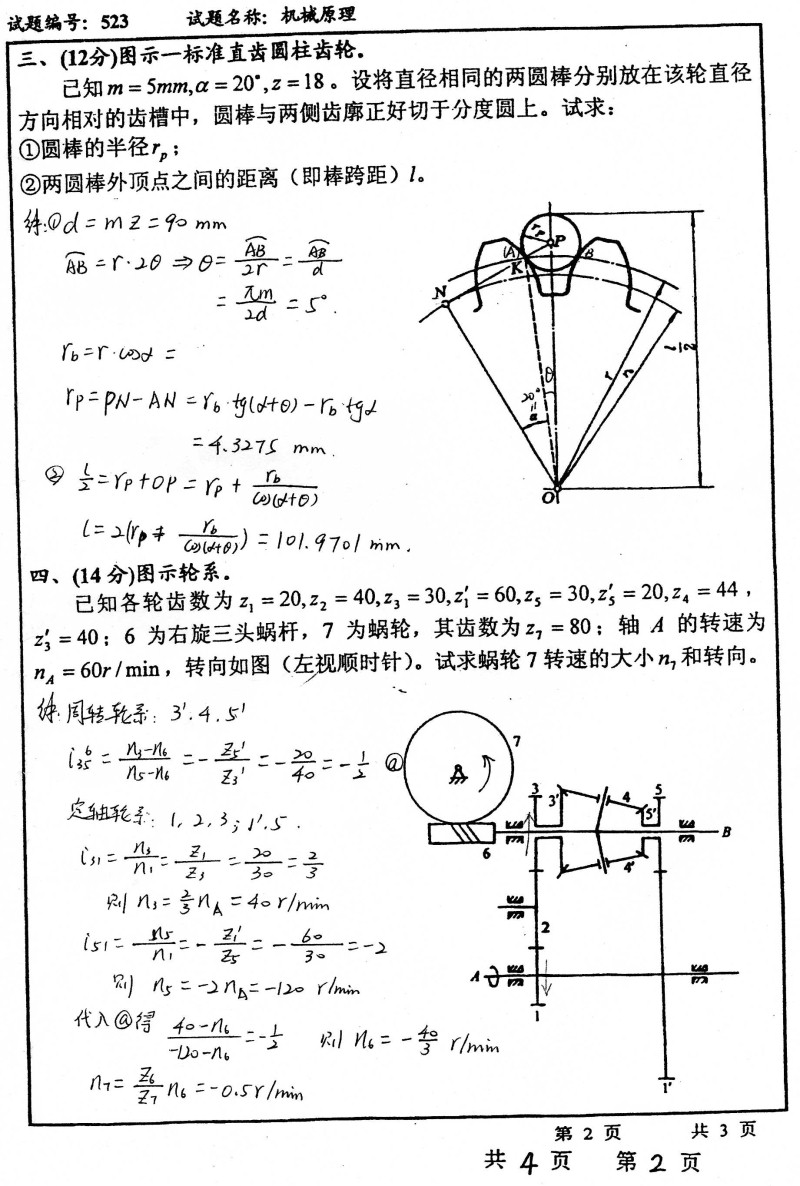 试题编号：523 试题名称：机械原理
三、(12分)图示一标准直齿圆柱齿轮。
已知 m = 5mm, α = 20°, z = 18 。设将直径相同的两圆棒分别放在该轮直径
方向相对的齿槽中，圆棒与两侧齿廓正好切于分度圆上。试求：
①圆棒的半径 r_p；
②两圆棒外顶点之间的距离（即棒跨距）l。
解:① d = mz = 90 mm
AB = r·2θ ⇒ θ = AB/2r = AB/d
= πm/2d = 5°.
r_b = r·cosα =
r_p = PN − AN = r_b·tg(α+θ) − r_b·tgα
= 4.3275 mm.
② L/2 = r_p + OP = r_p + r_b/cos(α+θ)
l = 2(r_p + r_b/cos(α+θ)) = 101.9701 mm.
r_p
P
(A)
B
K
N
θ
α=20°
r
r_b
l/2
O
四、(14 分)图示轮系。
已知各轮齿数为 z₁ = 20, z₂ = 40, z₃ = 30, z₁′ = 60, z₅ = 30, z₅′ = 20, z₄ = 44，
z₃′ = 40；6 为右旋三头蜗杆，7 为蜗轮，其齿数为 z₇ = 80；轴 A 的转速为
n_A = 60r / min，转向如图（左视顺时针）。试求蜗轮 7 转速的大小 n₇ 和转向。
解: 周转轮系: 3′. 4. 5′
i₃₅⁶ = n₃−n₆/n₅−n₆ = −z₅′/z₃′ = −20/40 = −1/2 @
定轴轮系: 1, 2, 3; 1′. 5.
i₃₁ = n₃/n₁ = z₁/z₃ = 20/30 = 2/3
则 n₃ = 2/3 n_A = 40 r/min
i₅₁ = n₅/n₁ = −z₁′/z₅ = −60/30 = −2
则 n₅ = −2n_A = −120 r/min
代入@得 40−n₆/−120−n₆ = −1/2 则 n₆ = −40/3 r/min
n₇ = z₆/z₇ n₆ = −0.5r/min
7
3
3′
4
5
5′
B
6
4′
2
A
1
1′
第 2 页 共 3 页
共 4 页 第 2 页